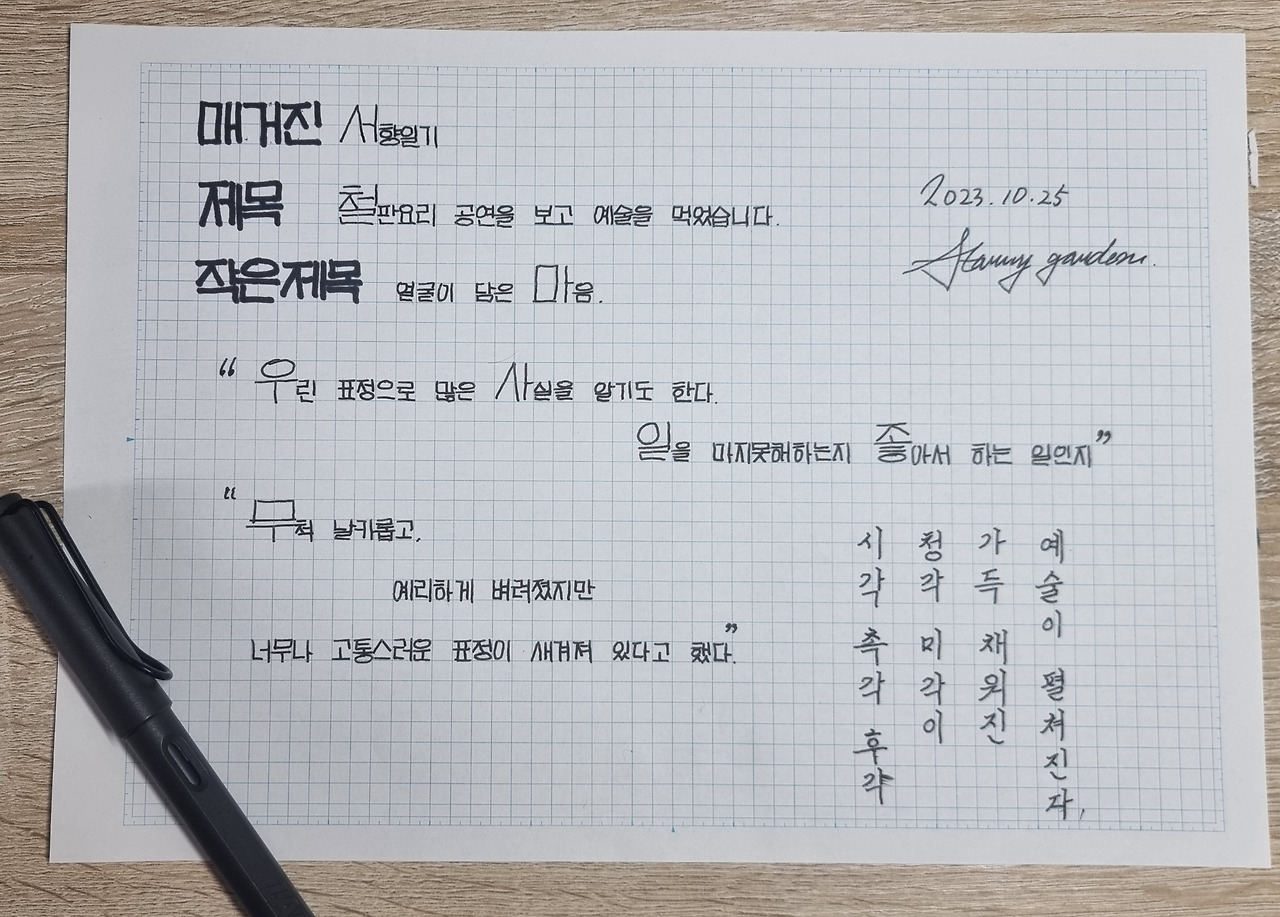 매거진 서향일기
제목 철판요리 공연을 보고 예술을 먹었습니다.
2023.10.25
작은제목 얼굴이 담은 마음.
Starry garden.
“우린 표정으로 많은 사실을 알기도 한다.
일을 마지못해하는지 좋아서 하는 일인지”
“무척 날카롭고,
예리하게 벼려졌지만
너무나 고통스러운 표정이 새겨져 있다고 했다.”
시각 촉각 후각
청각 미각이
가득 채워진
예술이 펼쳐진다,